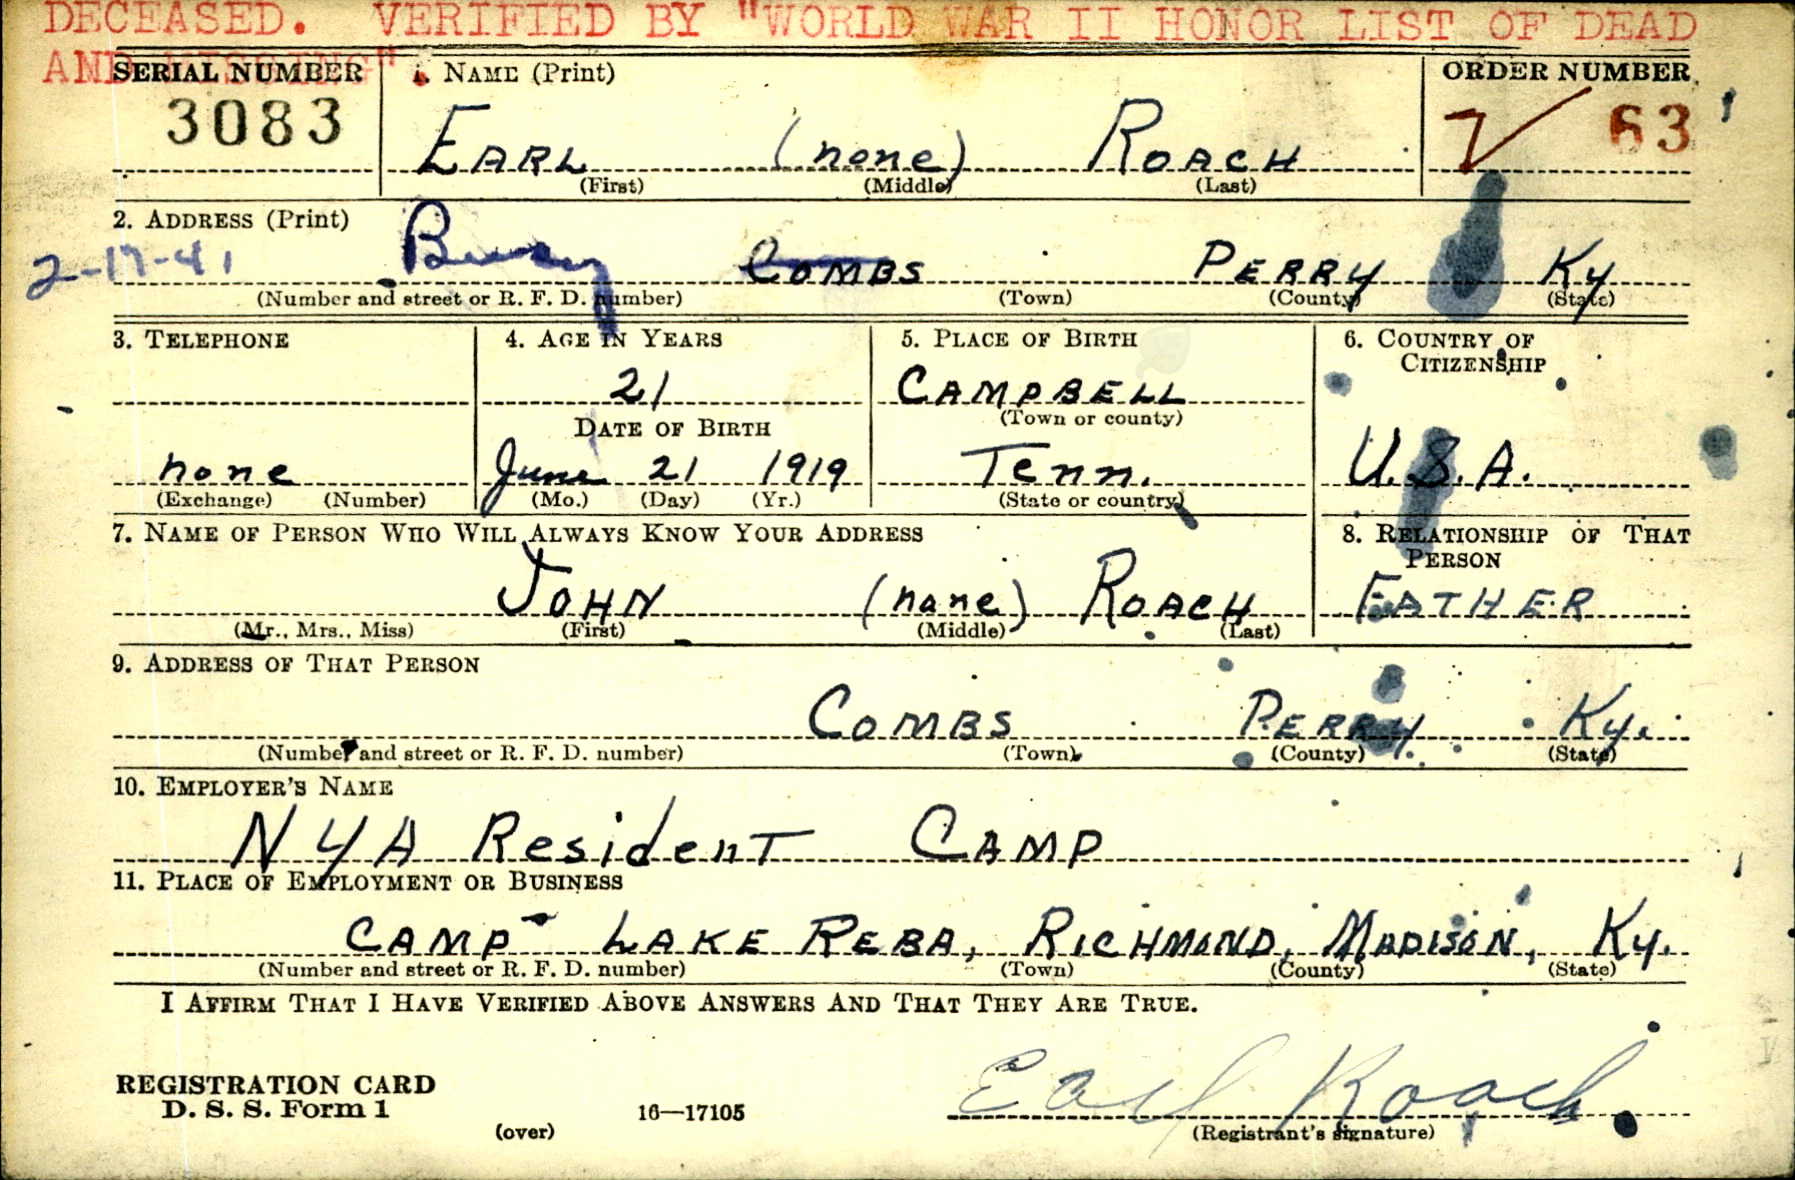 DECEASED. VERIFIED BY "WORLD WAR II HONOR LIST OF DEAD
AND MISSING"
SERIAL NUMBER
3083
1. NAME (Print)
EARL (none) ROACH
(First) (Middle) (Last)
ORDER NUMBER
V 63
2. ADDRESS (Print)
2-17-41 Busy COMBS PERRY Ky
(Number and street or R. F. D. number) (Town) (County) (State)
3. TELEPHONE
none
(Exchange) (Number)
4. AGE IN YEARS
21
DATE OF BIRTH
June 21 1919
(Mo.) (Day) (Yr.)
5. PLACE OF BIRTH
CAMPBELL
(Town or county)
Tenn.
(State or country)
6. COUNTRY OF
CITIZENSHIP
U.S.A.
7. NAME OF PERSON WHO WILL ALWAYS KNOW YOUR ADDRESS
JOHN (none) ROACH
(Mr., Mrs., Miss) (First) (Middle) (Last)
8. RELATIONSHIP OF THAT
PERSON
FATHER
9. ADDRESS OF THAT PERSON
COMBS PERRY Ky.
(Number and street or R. F. D. number) (Town) (County) (State)
10. EMPLOYER'S NAME
NYA ResidenT CAMP
11. PLACE OF EMPLOYMENT OR BUSINESS
CAMP - LAKE REBA, RICHMOND, MADISON, Ky.
(Number and street or R. F. D. number) (Town) (County) (State)
I AFFIRM THAT I HAVE VERIFIED ABOVE ANSWERS AND THAT THEY ARE TRUE.
REGISTRATION CARD
D. S. S. Form 1
16—17105
(over)
Earl Roach
(Registrant's signature)